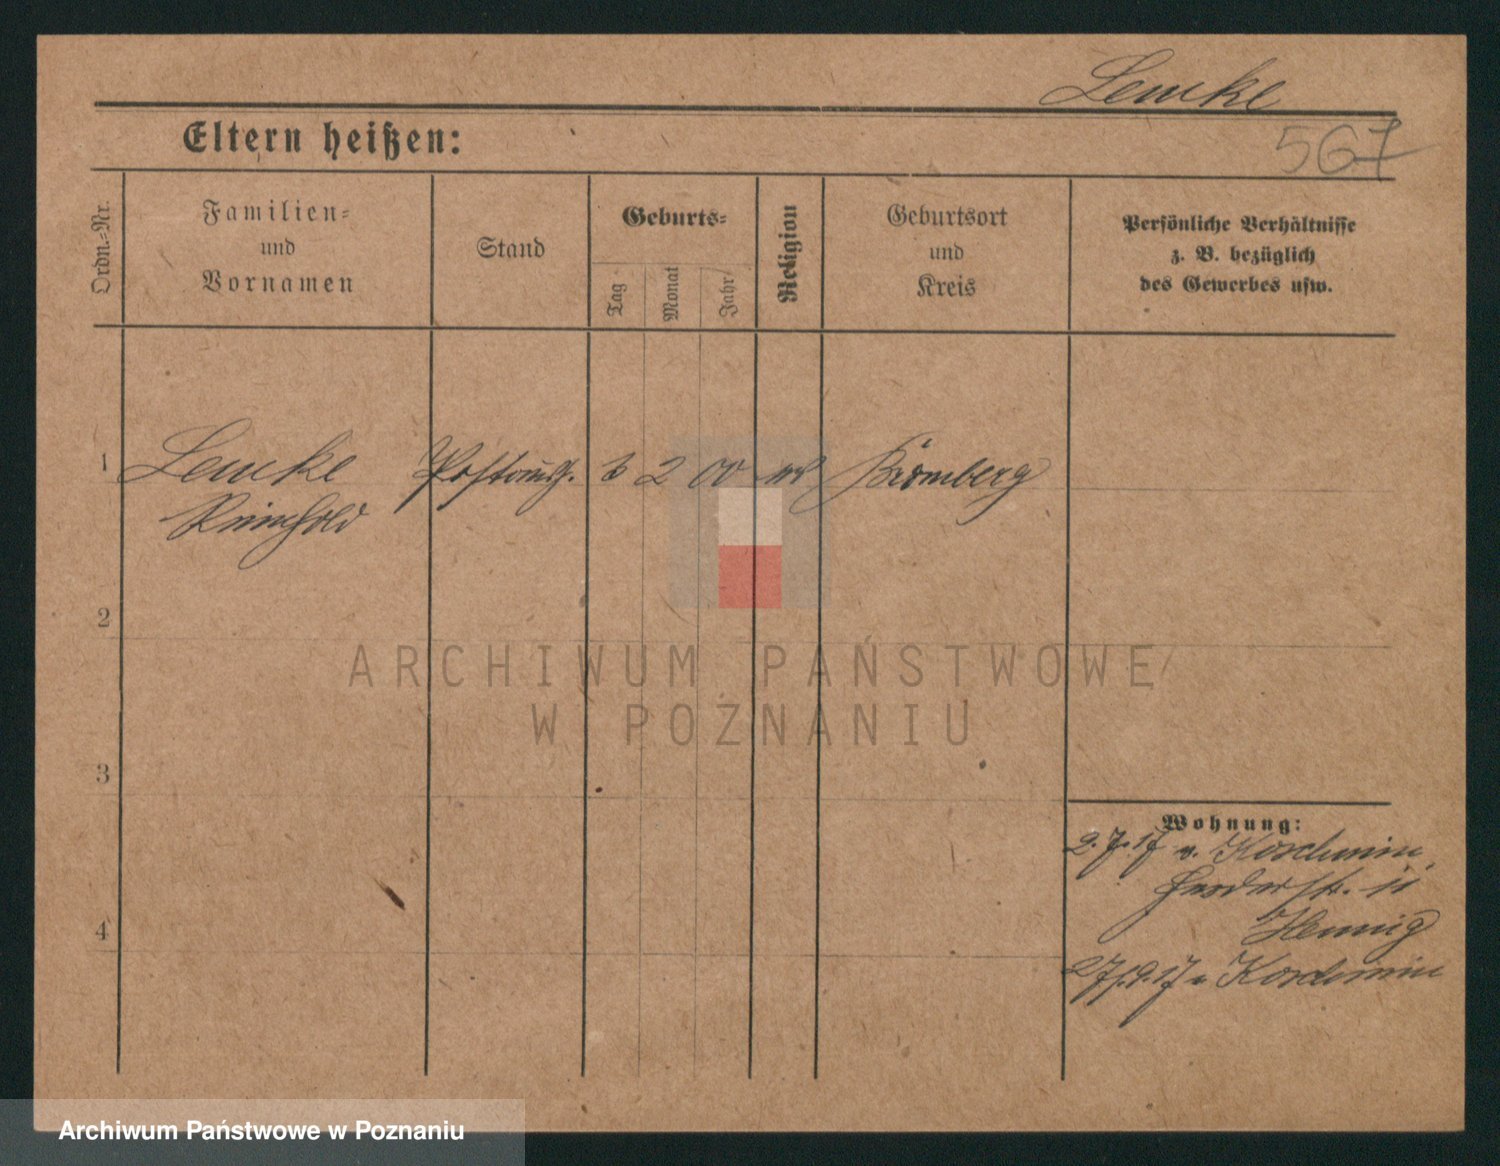 Lemke
567
Eltern heißen:
Ordn.-Nr.
Familien-
und
Vornamen
Stand
Geburts-
Tag
Monat
Jahr
Religion
Geburtsort
und
Kreis
Persönliche Verhältnisse
z. B. bezüglich
des Gewerbes usw.
1 Lemke 2 00 Bromberg
Reinhold
2
3
4
ARCHIWUM PAŃSTWOWE
W POZNANIU
Wohnung:
2.7.17 v. Koschmin,
11
Hennig
27.9.17 n Koschmin
Archiwum Państwowe w Poznaniu